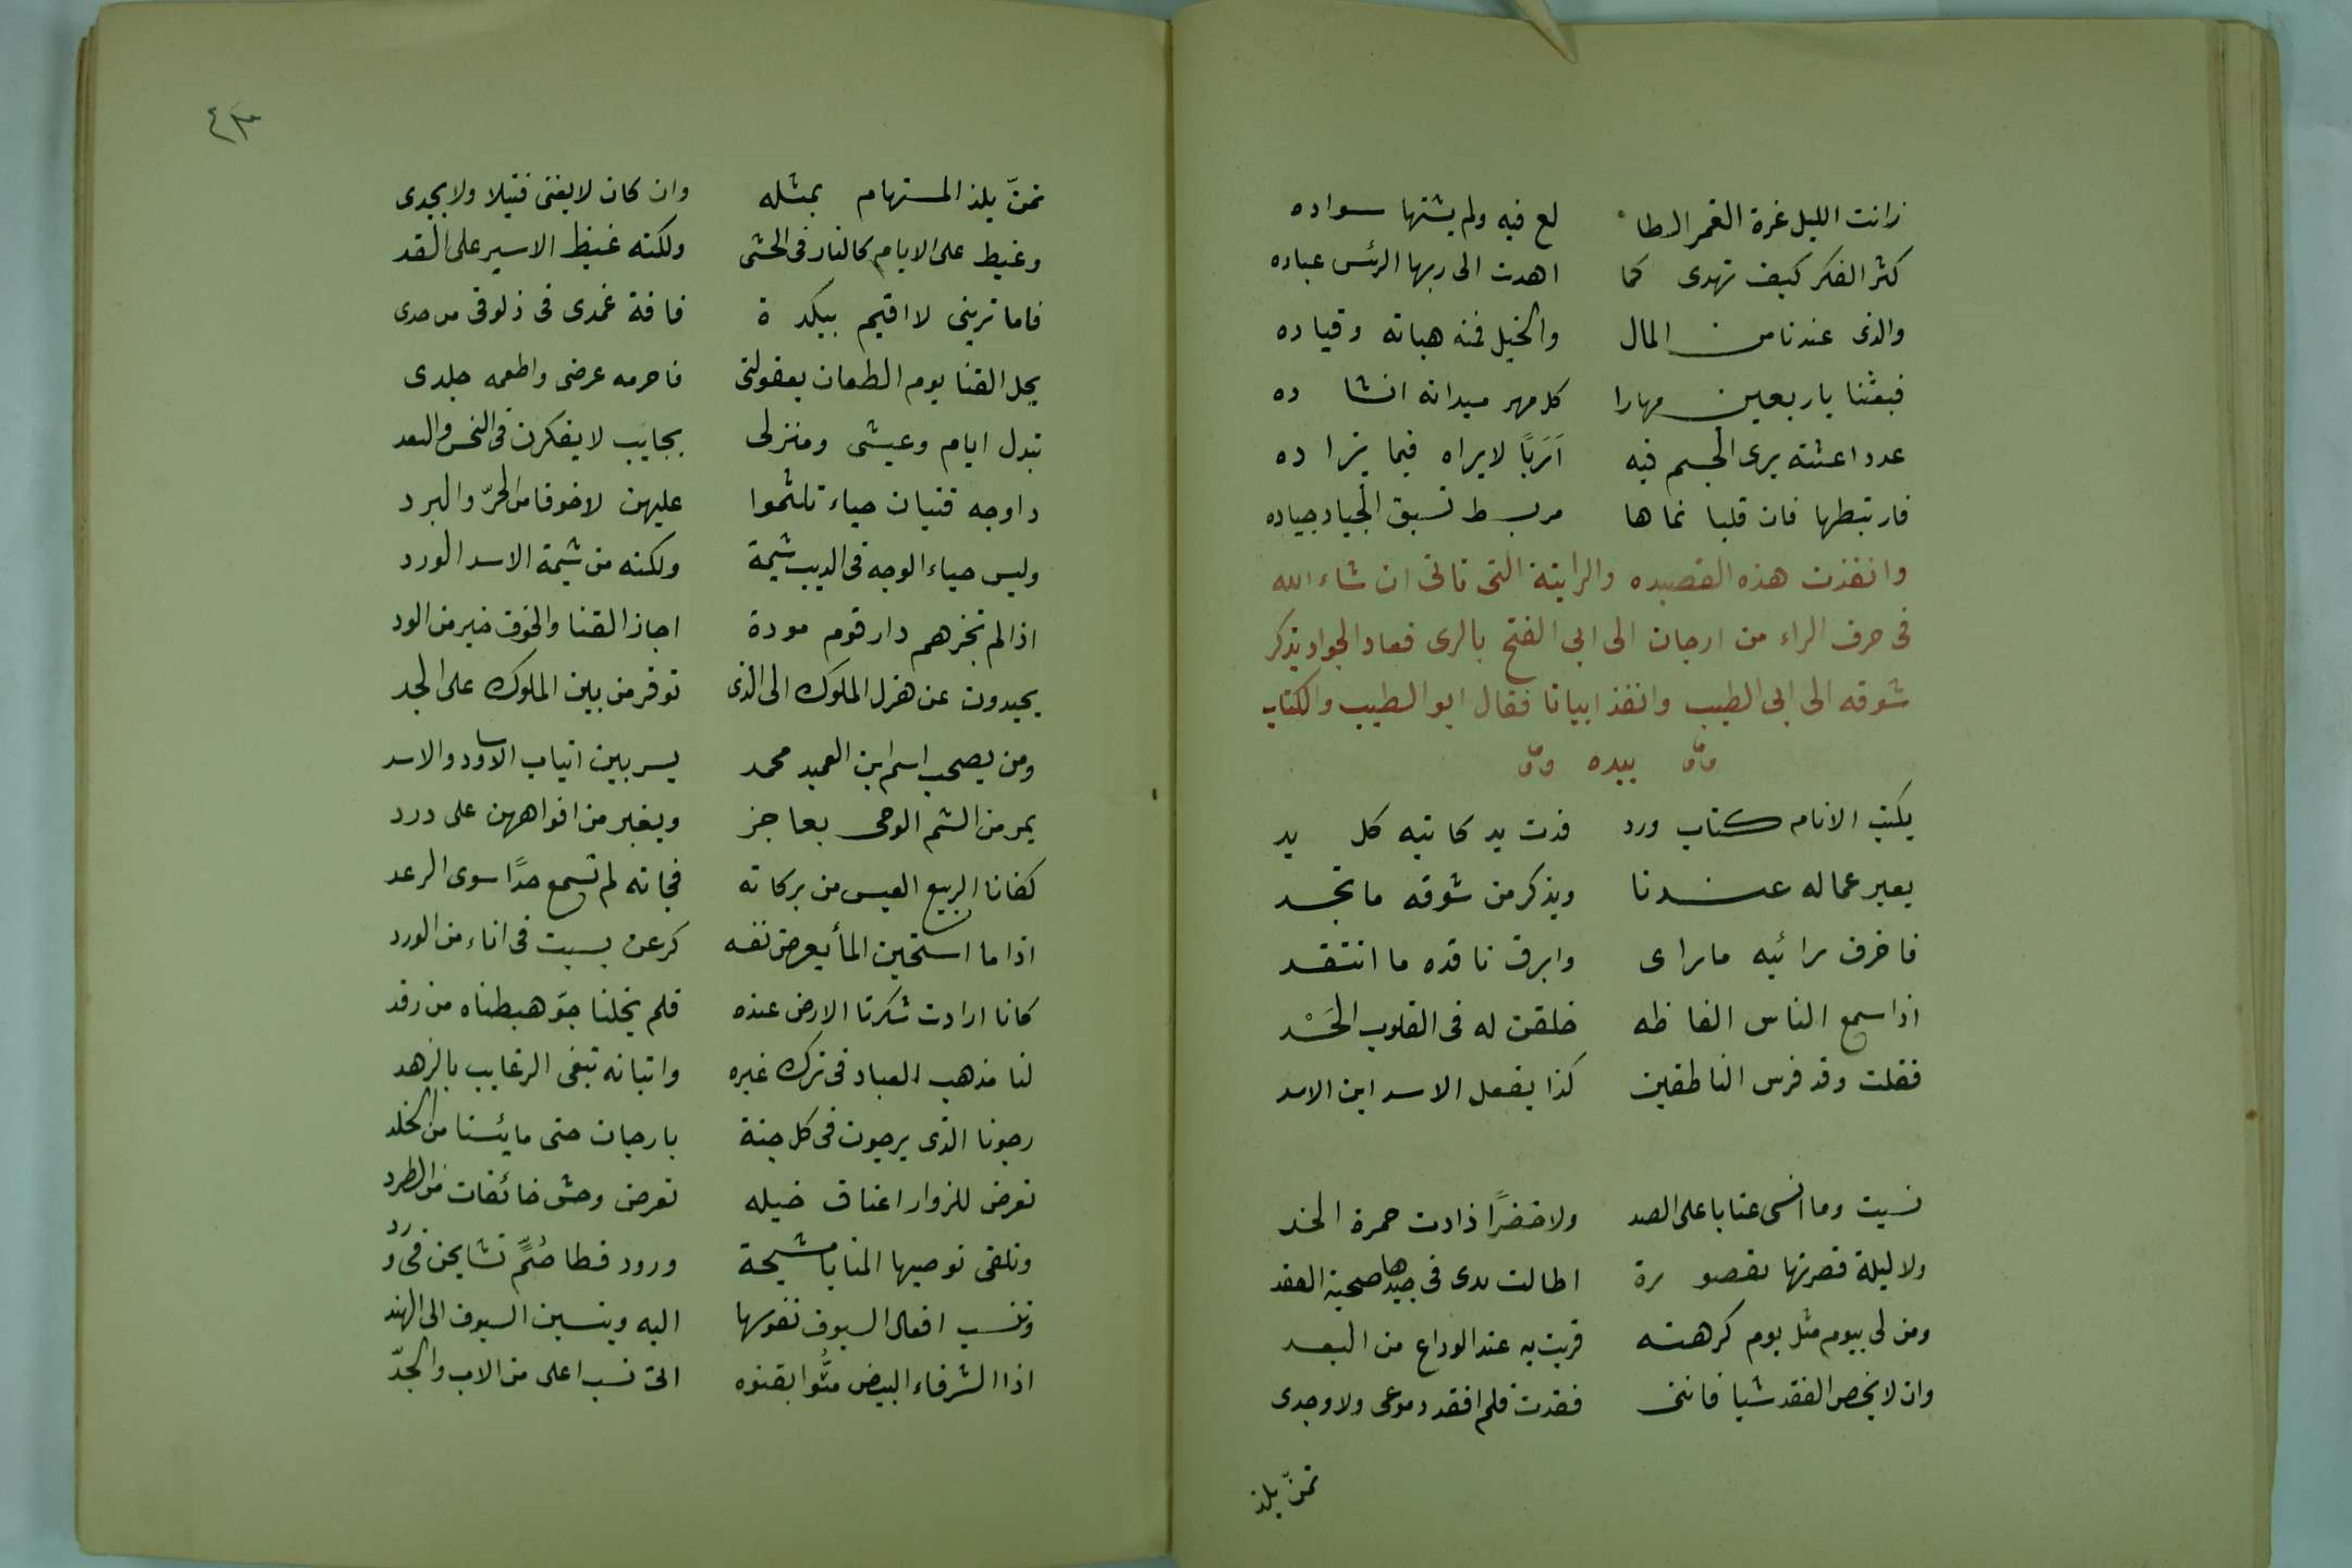 زانت الليل غرة القمر الطا لع فيه ولم يشنها سواده
كثر الفكر كيف تهدى كما اهدت الى ربها الرئس عباده
والذى عندنا من المال والخيل فمنه هباته وقياده
فبعثنا باربعين مهارا كل مهر ميدانه انشا ده
عدد اعشته يرى الجسم فيه اَرَبًا لا يراه فيما يزا ده
فارتبطها فان قلبا نماها مربط تسبق الجياد جياده
وانفذت هذه القصيده والرايئة التى تاتى ان شاء الله
فى حرف الراء من ارجان الى ابى الفتح بالرى فعاد الجواد يذكر
شوقه الى ابى الطيب وانفذ ابياتا فقال ابو الطيب والكتاب
بيده
يكتب الانام كتاب ورد فدت يد كاتبه كل يد
يعبر عما له عندنا ويذكر من شوقه ما تجد
فاخرف رائيه ما راى وابرق ناقده ما انتقد
اذا سمع الناس الفاظه خلقن له فى القلوب الحَسْد
فقلت وقد فرس الناطقين كذا يفعل الاسد ابن الاسد
نسيت وما انسى عتابا على الصد ولا خفرًا زادت حمرة الخد
ولا ليلة قصرتها بقصو رة اطالت يدى فى جيدها صحبة العقد
ومن لى بيوم مثل يوم كرهته قربت به عند الوداع من البعد
وان لا يخص الفقد شيا فاننى فقدت فلم افقد دموعى ولا وجدى
تمنّ يلذ
٤٣
تمنّ يلذ المستهام بمثله وان كان لا يغنى فتيلا ولا يجدى
وغيظ على الايام كالنار فى الحشى ولكنه غيظ الاسير على القد
فاما ترينى لا اقيم ببلد ة فافة غمدى فى ذلوقى من حدى
يحل القنا يوم الطعان بعقولتى فاحرمه عرضى واطعمه جلدى
تبدل ايام وعيشى ومنزلى نجايب لا يفكرن فى النحس والسعد
واوجه فتيان حياء تلثموا عليهن لا خوفا من الحرّ والبرد
وليس حياء الوجه فى الذيب شيمة ولكنه من شيمة الاسد الورد
اذا لم تجزهم دار قوم مودة اجاز القنا والخوف خير من الود
يحيدون عن هزل الملوك الى الذى توفر من بين الملوك على الجد
ومن يصحب اسم ابن العميد محمد يسر بين انياب الاساود والاسد
يمر من السم الوحى بعاجز ويعبر من افواههن على درد
كفانا الربيع العيس من بركاته فجاته لم تسمع حدًا سوى الرعد
اذا ما استحين الما يعرض نفسه كرعن بسبت فى اناء من الورد
كانا ارادت شكرنا الارض عنده فلم يخلنا جوّ هبطناه من رفد
لنا مذهب العباد فى ترك غيره واتيانه نبغى الرغايب بالزهد
رجونا الذى يرجون فى كل جنة بارجان حتى ما يئسنا من الخلد
تعرض للزوار اعناق خيله تعرض وحش خائفات من الطرد
وتلقى نواصيها المنايا مشيحة ورود قطا صُمٍّ تشايحن فى ورد
وتنسب افعال السيوف نفوسها اليه وينسبن السيوف الى الهند
اذا الشرفاء البيض متُّوا بقتوه اتى نسب اعلى من الاب والجدّ